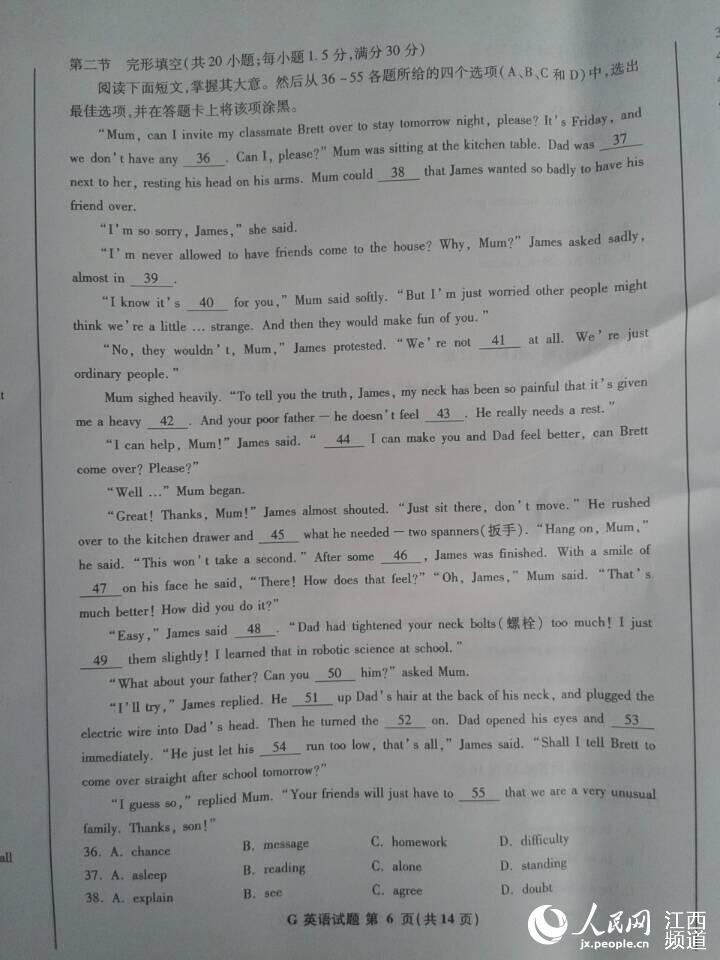 第二节 完形填空(共20小题;每小题1.5分,满分30分)
阅读下面短文,掌握其大意。然后从36~55各题所给的四个选项(A、B、C和D)中,选出
最佳选项,并在答题卡上将该项涂黑。
"Mum, can I invite my classmate Brett over to stay tomorrow night, please? It's Friday, and
we don't have any 36 . Can I, please?" Mum was sitting at the kitchen table. Dad was 37
next to her, resting his head on his arms. Mum could 38 that James wanted so badly to have his
friend over.
"I'm so sorry, James," she said.
"I'm never allowed to have friends come to the house? Why, Mum?" James asked sadly,
almost in 39 .
"I know it's 40 for you," Mum said softly. "But I'm just worried other people might
think we're a little … strange. And then they would make fun of you."
"No, they wouldn't, Mum," James protested. "We're not 41 at all. We're just
ordinary people."
Mum sighed heavily. "To tell you the truth, James, my neck has been so painful that it's given
me a heavy 42 . And your poor father — he doesn't feel 43 . He really needs a rest."
"I can help, Mum!" James said. " 44 I can make you and Dad feel better, can Brett
come over? Please?"
"Well …" Mum began.
"Great! Thanks, Mum!" James almost shouted. "Just sit there, don't move." He rushed
over to the kitchen drawer and 45 what he needed — two spanners(扳手). "Hang on, Mum,"
he said. "This won't take a second." After some 46 , James was finished. With a smile of
47 on his face he said, "There! How does that feel?" "Oh, James," Mum said. "That's
much better! How did you do it?"
"Easy," James said 48 . "Dad had tightened your neck bolts(螺栓) too much! I just
49 them slightly! I learned that in robotic science at school."
"What about your father? Can you 50 him?" asked Mum.
"I'll try," James replied. He 51 up Dad's hair at the back of his neck, and plugged the
electric wire into Dad's head. Then he turned the 52 on. Dad opened his eyes and 53
immediately. "He just let his 54 run too low, that's all," James said. "Shall I tell Brett to
come over straight after school tomorrow?"
"I guess so," replied Mum. "Your friends will just have to 55 that we are a very unusual
family. Thanks, son!"
36. A. chance B. message C. homework D. difficulty
37. A. asleep B. reading C. alone D. standing
38. A. explain B. see C. agree D. doubt
G 英语试题 第 6 页(共14页)
all
人民网 江西频道
jx.people.cn